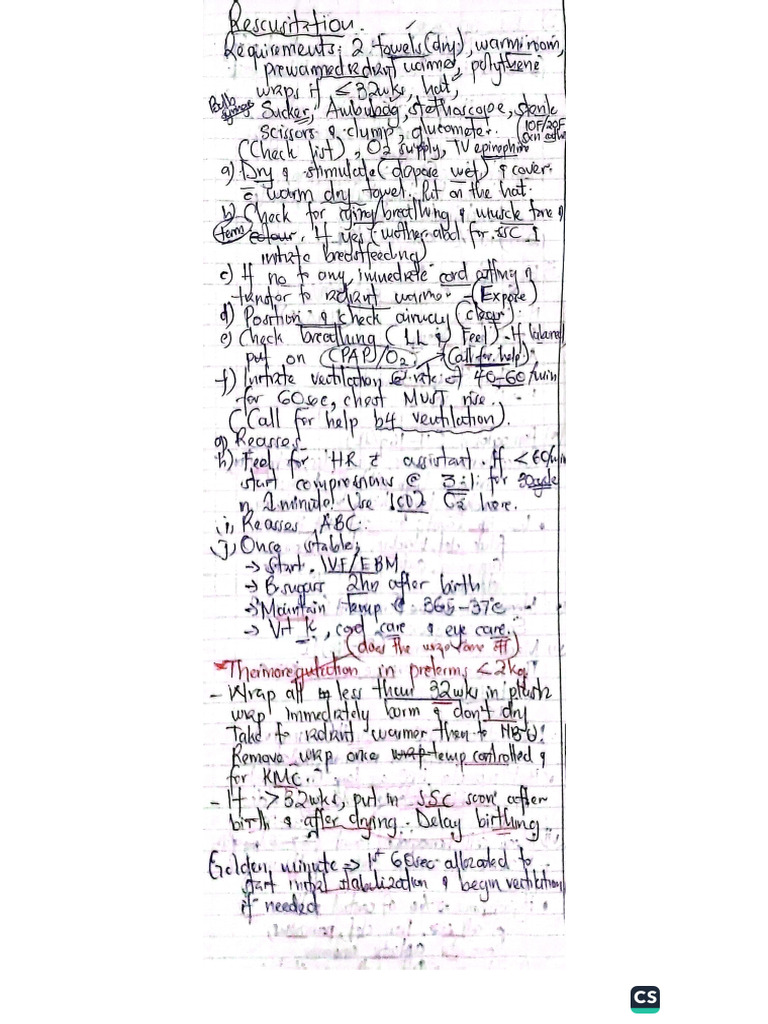 Rescusitation.
Requirements: 2 towels (dry), warm room,
prewarmed radiant warmer, polythene
wraps if ≤32wks, hat,
Bulb syringe Sucker, Ambubag, stethoscope, sterile
scissors & clump, glucometer. (10F/20F
(Check list), O2 supply, IV epinephrine
a) Dry & stimulate (dapose wet) & cover
c̄ warm dry towel. Put on the hat.
b) Check for crying/breathing & muscle tone &
(term) colour. If yes (mother abd. for SSC &
initiate breastfeeding)
c) If no to any, immediate cord cutting &
transfer to radiant warmer - (Expose)
d) Position & check airway (clear).
e) Check breathing (LL & Feel) - If
put on (CPAP)/O2, (Call for help).
f) Initiate ventilation @ rate of 40-60/min
for 60sec, chest MUST rise.
(Call for help b4 ventilation).
g) Reasses
h) Feel for HR c̄ assistant. If <60/min
start compressions @ 3:1 for 30cycle
n 1minute! Use 100% O2 here.
i) Reasses ABC.
j) Once stable;
→ Start IVF/EBM
→ B-sugars 2hr after birth
→ Maintain temp @ 36.5-37°c
→ Vit K, cord care & eye care.
(does the wrap come off)
*Thermoregulation in preterms <2kg
- Wrap all less than 32wks in plastic
wrap immediately born & don't dry
Take to radiant warmer then to NBU!
Remove wrap once wrap temp controlled &
for KMC.
- If >32wks, put in SSC soon after
birth & after drying. Delay birthing.
Golden minute => 1st 60sec allocated to
start initial stabilization & begin ventilation
if needed
CS